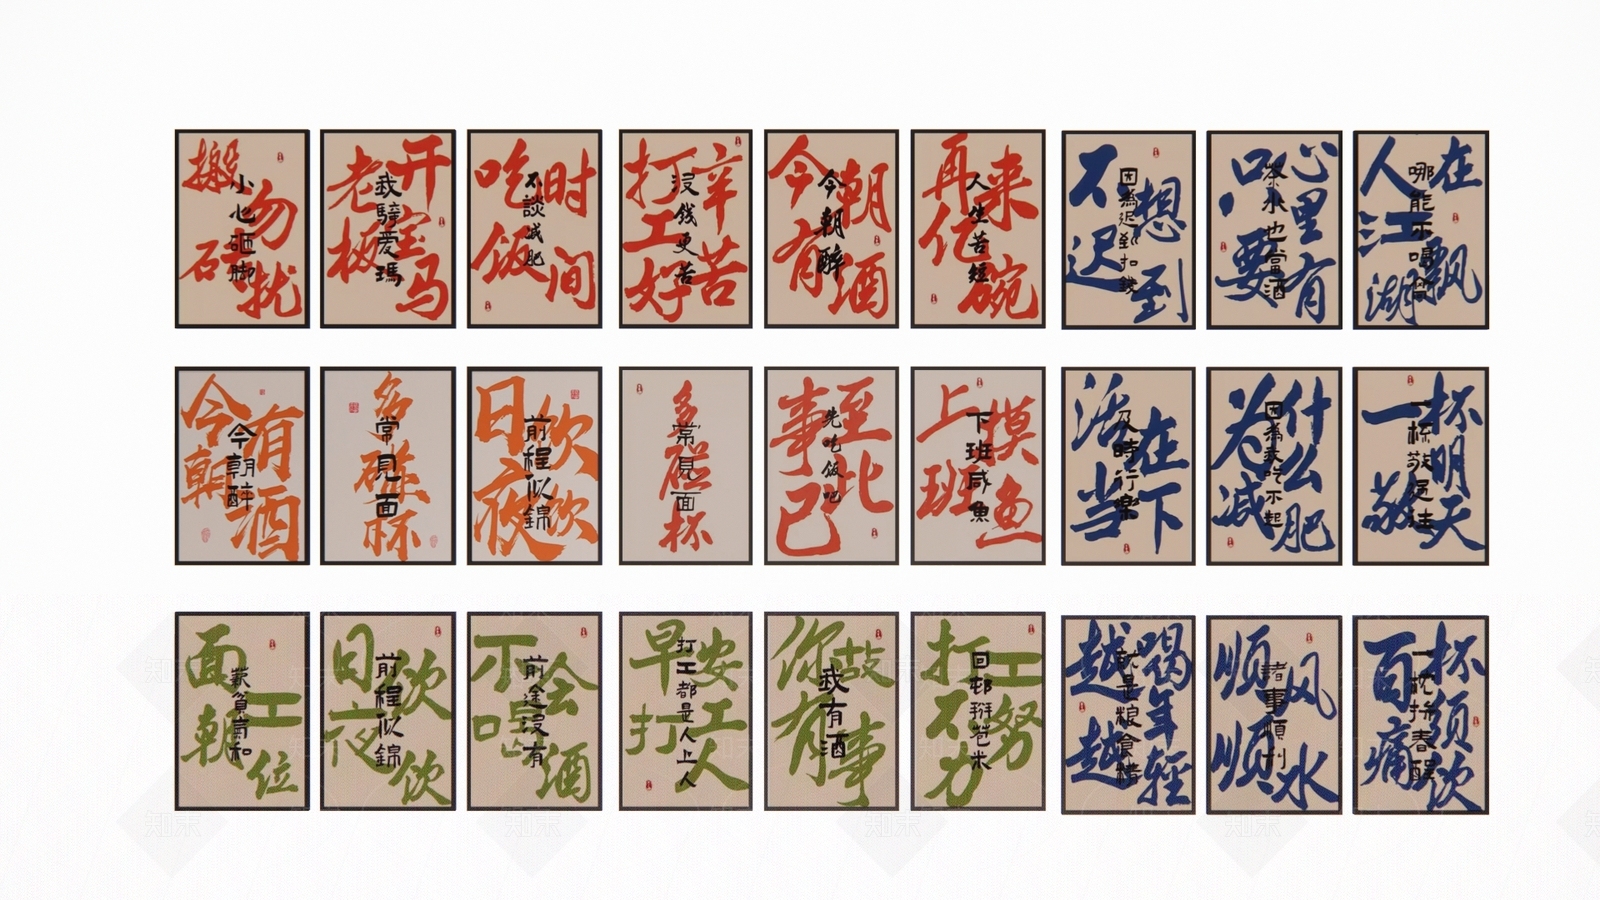 搬砖勿扰
小心砸脚
老板开宝马
我骑爱玛
吃饭时间
不談减肥
打工好辛苦
没钱更苦
今朝有酒
今朝醉
再来亿碗
人生苦短
不想迟到
因為迟到扣錢
只要心里有
茶水也當酒
人在江湖飘
哪能不喝高
今朝有酒
今朝醉
多碰杯
常見面
日饮夜饮
前程似錦
多碰杯
常見面
事已至此
先吃饭吧
上班摸鱼
下班咸魚
活在当下
及時行樂
为什么减肥
因為我吃不起
一杯敬明天
一杯敬過往
面朝工位
日饮夜饮
前程似錦
不会喝酒
前途没有
早安打工人
打工都是人上人
你有故事
我有酒
打工不努力
回邨掰苞米
越喝越年輕
就是粮食精
顺风顺水
諸事順利
百杯须饮